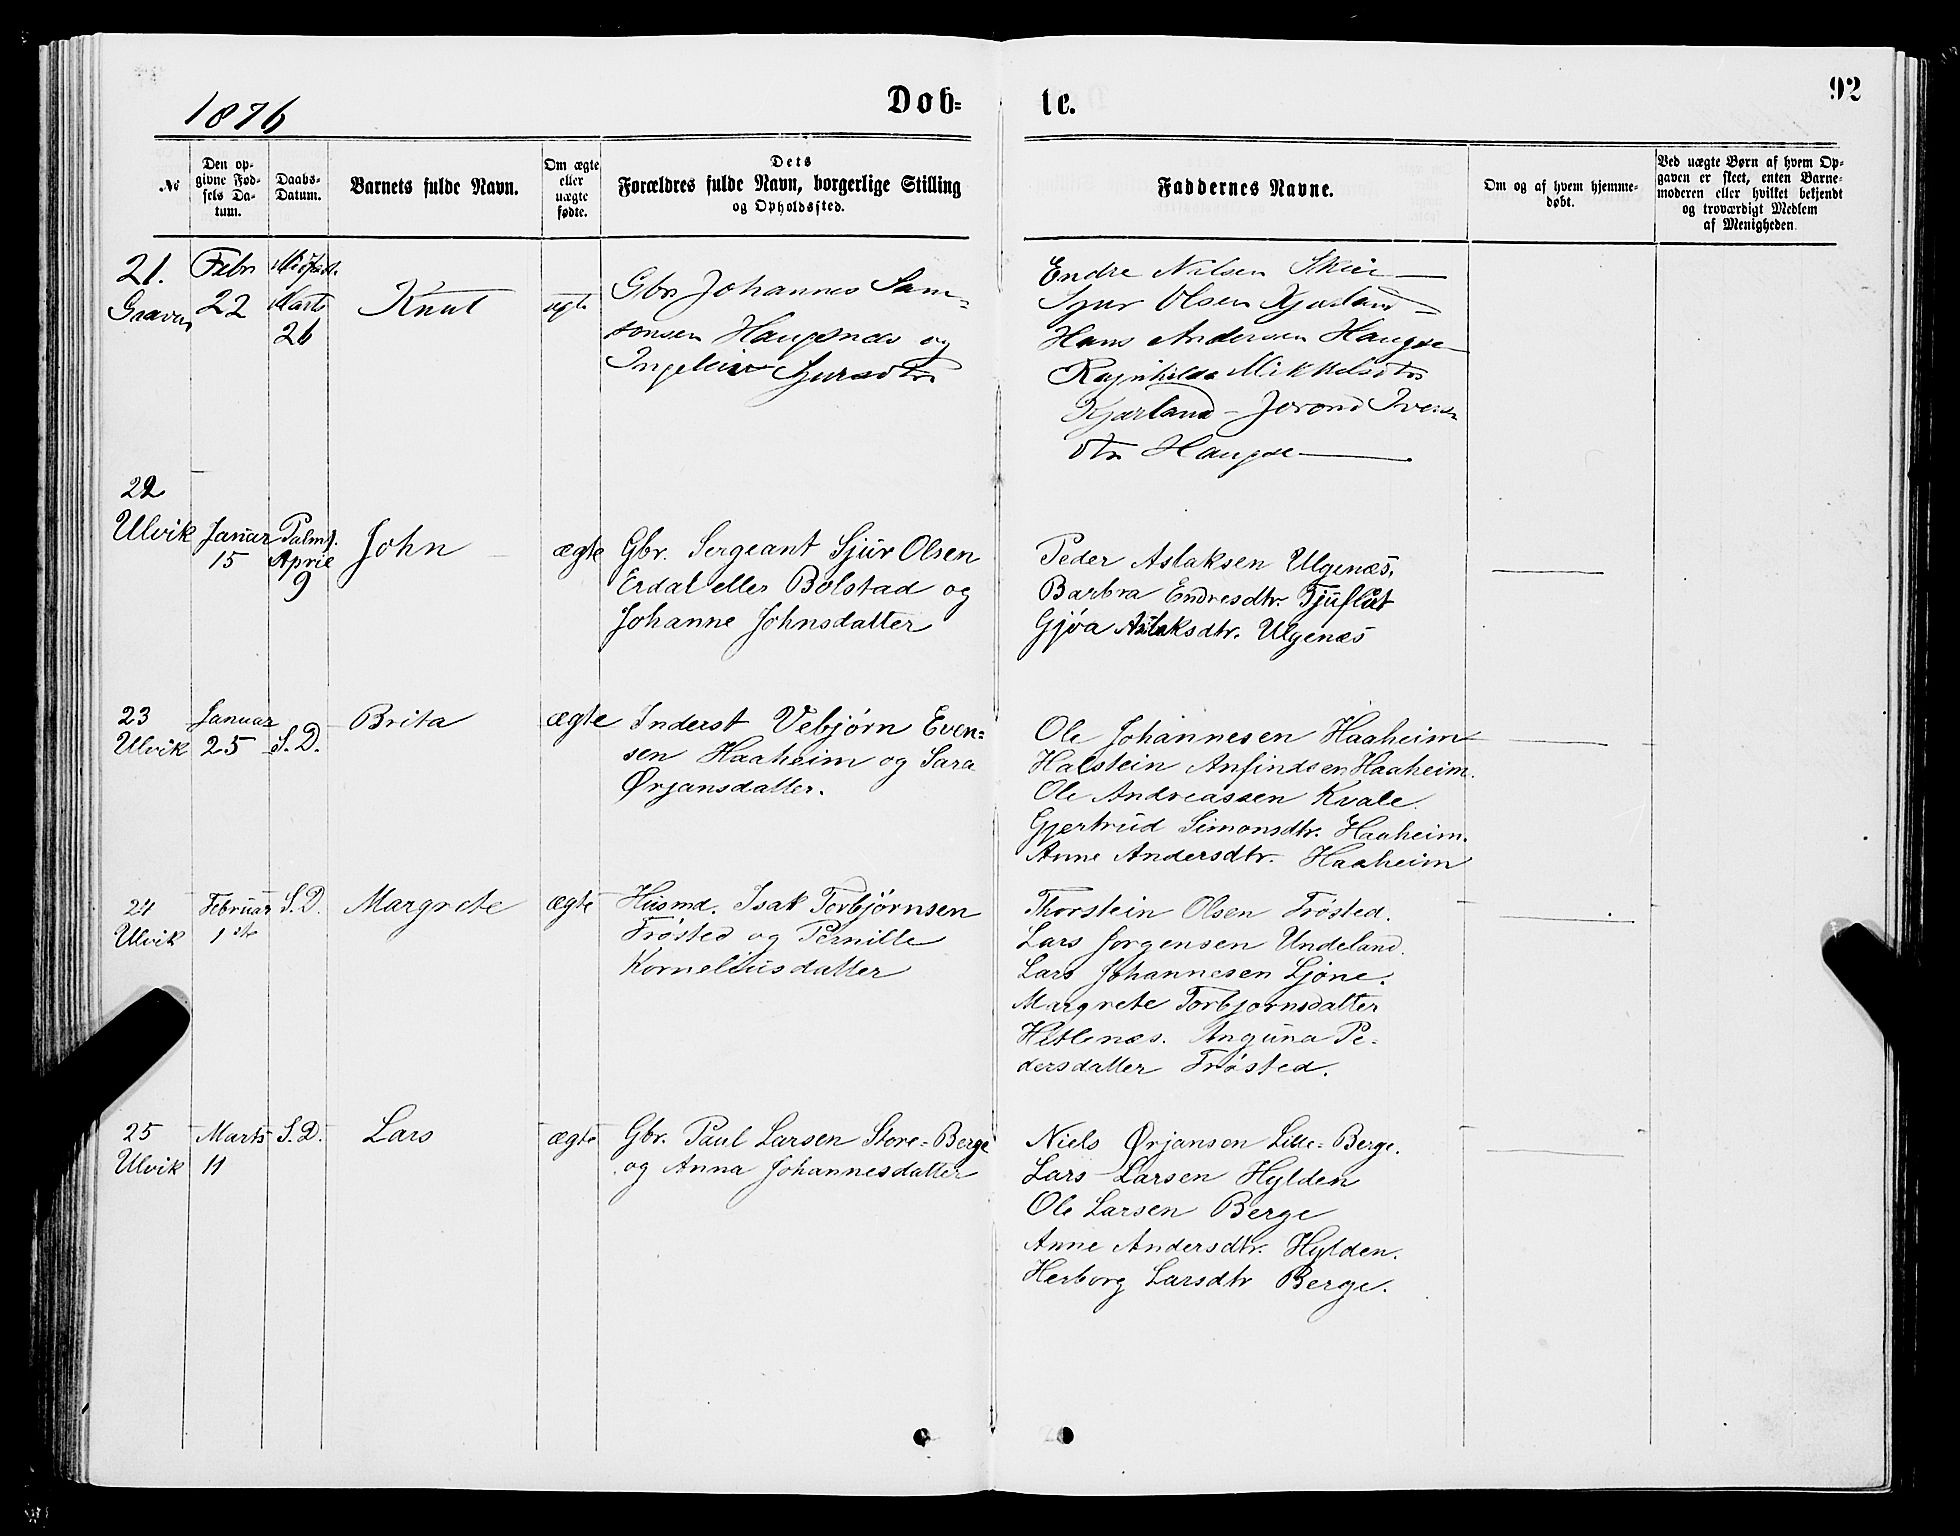 92
1876
Døb=
te.
№
Den op-
givne Fød-
sels Da-
tum.
Daabs-
Datum.
Barnets fulde Navn.
Om ægte
eller
uægte
fødte.
Dets
Forældres fulde Navn, borgerlige Stilling
og Opholdssted.
Faddernes Navne.
Om og af hvem hjemme-
døbt.
Ved uægte Børn af hvem Op-
gaven er skeet, enten Barne-
moderen eller hvilket bekjendt
og troværdigt Medlem
af Menigheden.
21.
Graven
Febr
22
Midfast.
Marts
26
Knut
ægte
Gbr Johannes Sam=
sonsen Haugsnæs og
Ingeleiv Sjursdtr
Endre Nilsen Skeie
Sjur Olsen Kjærland
Hans Andersen Haugse
Ragnhilda Mikkelsdtr
Kjærland - Jorond Ivers
dtr Haugse
22
Ulvik
Januar
15
Palms.
April
9
John
ægte
Gbr. Sergeant Sjur Olsen
Erdal eller Bolstad og
Johanne Johnsdatter
Peder Aslaksen Ulgenæs.
Barbra Endresdtr. Tjuflåt
Gjøa Aslaksdtr. Ulgenæs
23
Ulvik
Januar
25
S. D.
Brita
ægte
Inderst Vebjørn Even=
sen Haaheim og Sara
Ørjansdatter.
Ole Johannesen Haaheim
Halstein Anfindsen Haaheim.
Ole Andreassen Kvale.
Gjertrud Simonsdtr. Haaheim.
Anne Andersdtr. Haaheim
24
Ulvik
Februar
1ste
S. D.
Margrete
ægte
Husmd. Isak Torbjørnsen
Frøsted og Pernille
Korneliusdatter
Thorstein Olsen Frøsted.
Lars Jørgensen Undeland.
Lars Johannesen Ljøne.
Margrete Torbjørnsdatter
Hetlenæs. Anguna Pe=
dersdatter Frøsted.
25
Ulvik
Marts
11
S. D.
Lars
ægte
Gbr. Paul Larsen Store=Berge
og Anna Johannesdatter
Niels Ørjansen Lille=Berge.
Lars Larsen Hylden
Ole Larsen Berge
Anne Andersdtr. Hylden.
Herborg Larsdtr Berge.